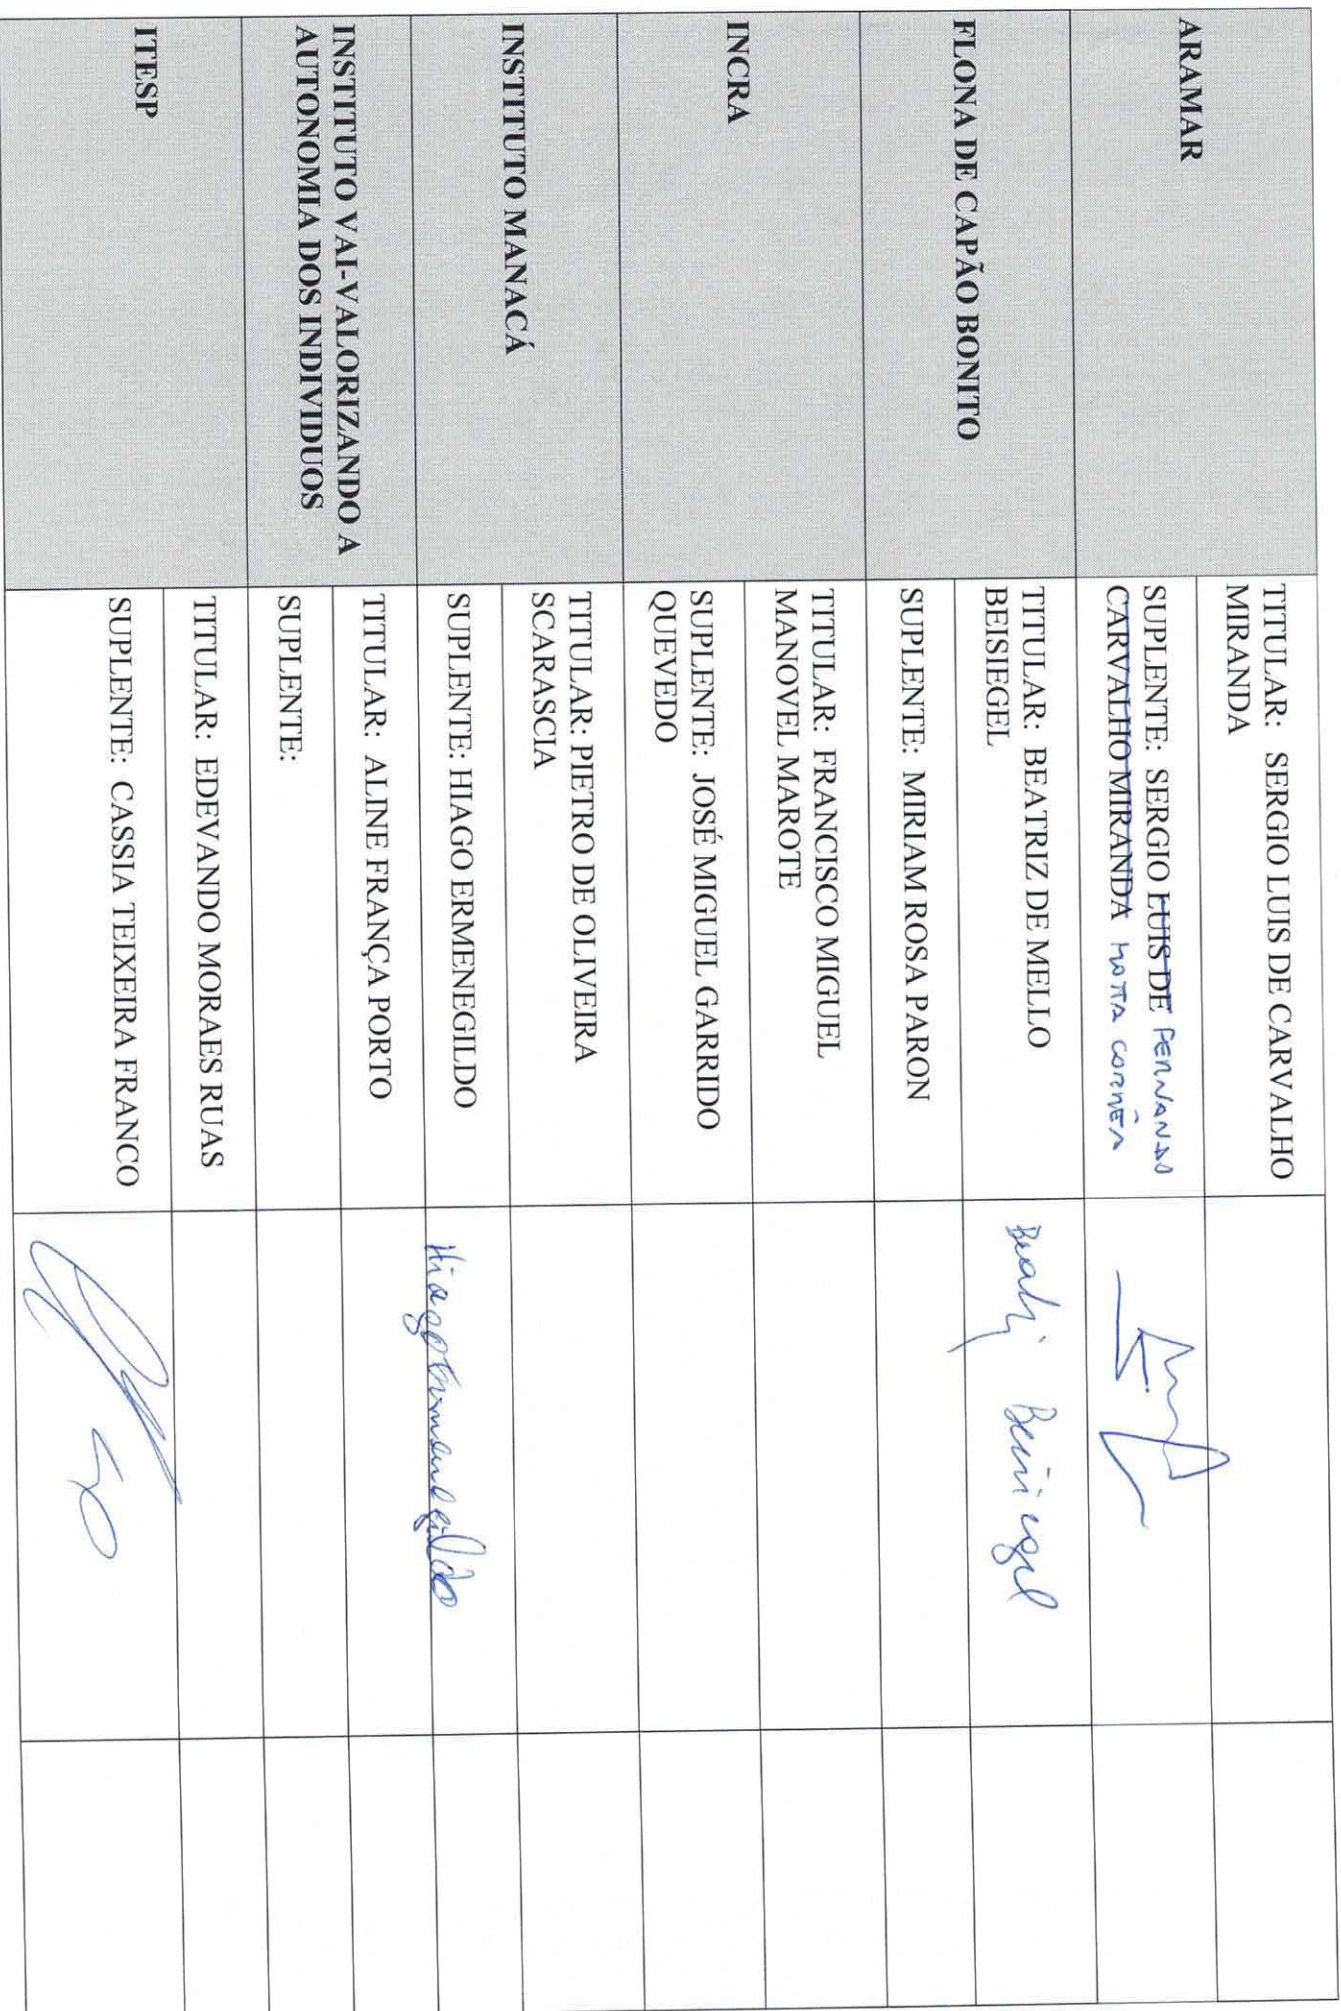 ARAMAR
TITULAR: SERGIO LUIS DE CARVALHO
MIRANDA
SUPLENTE: SERGIO LUIS DE FERNANDO
CARVALHO MIRANDA MOTTA CORRÊA
FLONA DE CAPÃO BONITO
TITULAR: BEATRIZ DE MELLO
BEISIEGEL
Beatriz Beisiegel
SUPLENTE: MIRIAM ROSA PARON
INCRA
TITULAR: FRANCISCO MIGUEL
MANOVEL MAROTE
SUPLENTE: JOSÉ MIGUEL GARRIDO
QUEVEDO
INSTITUTO MANACÁ
TITULAR: PIETRO DE OLIVEIRA
SCARASCIA
SUPLENTE: HIAGO ERMENEGILDO
Hiago Ermenegildo
INSTITUTO VAI-VALORIZANDO A
AUTONOMIA DOS INDIVIDUOS
TITULAR: ALINE FRANÇA PORTO
SUPLENTE:
ITESP
TITULAR: EDEVANDO MORAES RUAS
SUPLENTE: CASSIA TEIXEIRA FRANCO